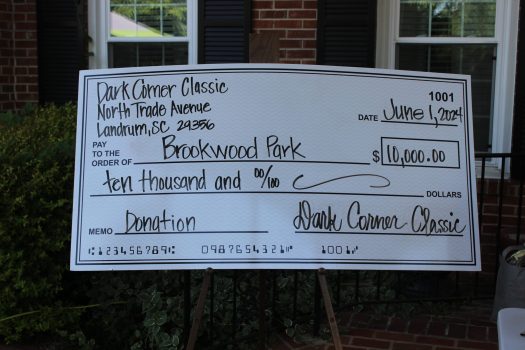 Dark Corner Classic
North Trade Avenue
Landrum, SC 29356
1001
DATE June 1, 2024
PAY
TO THE
ORDER OF Brookwood Park $ 10,000.00
ten thousand and 00/100 DOLLARS
MEMO Donation Dark Corner Classic
⑆123456789⑆ 0987654321⑈ 1001⑈